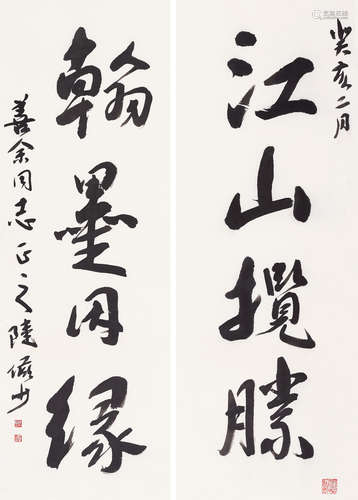 癸亥二月
江山攬勝
翰墨因緣
善余同志正之 陸儼少